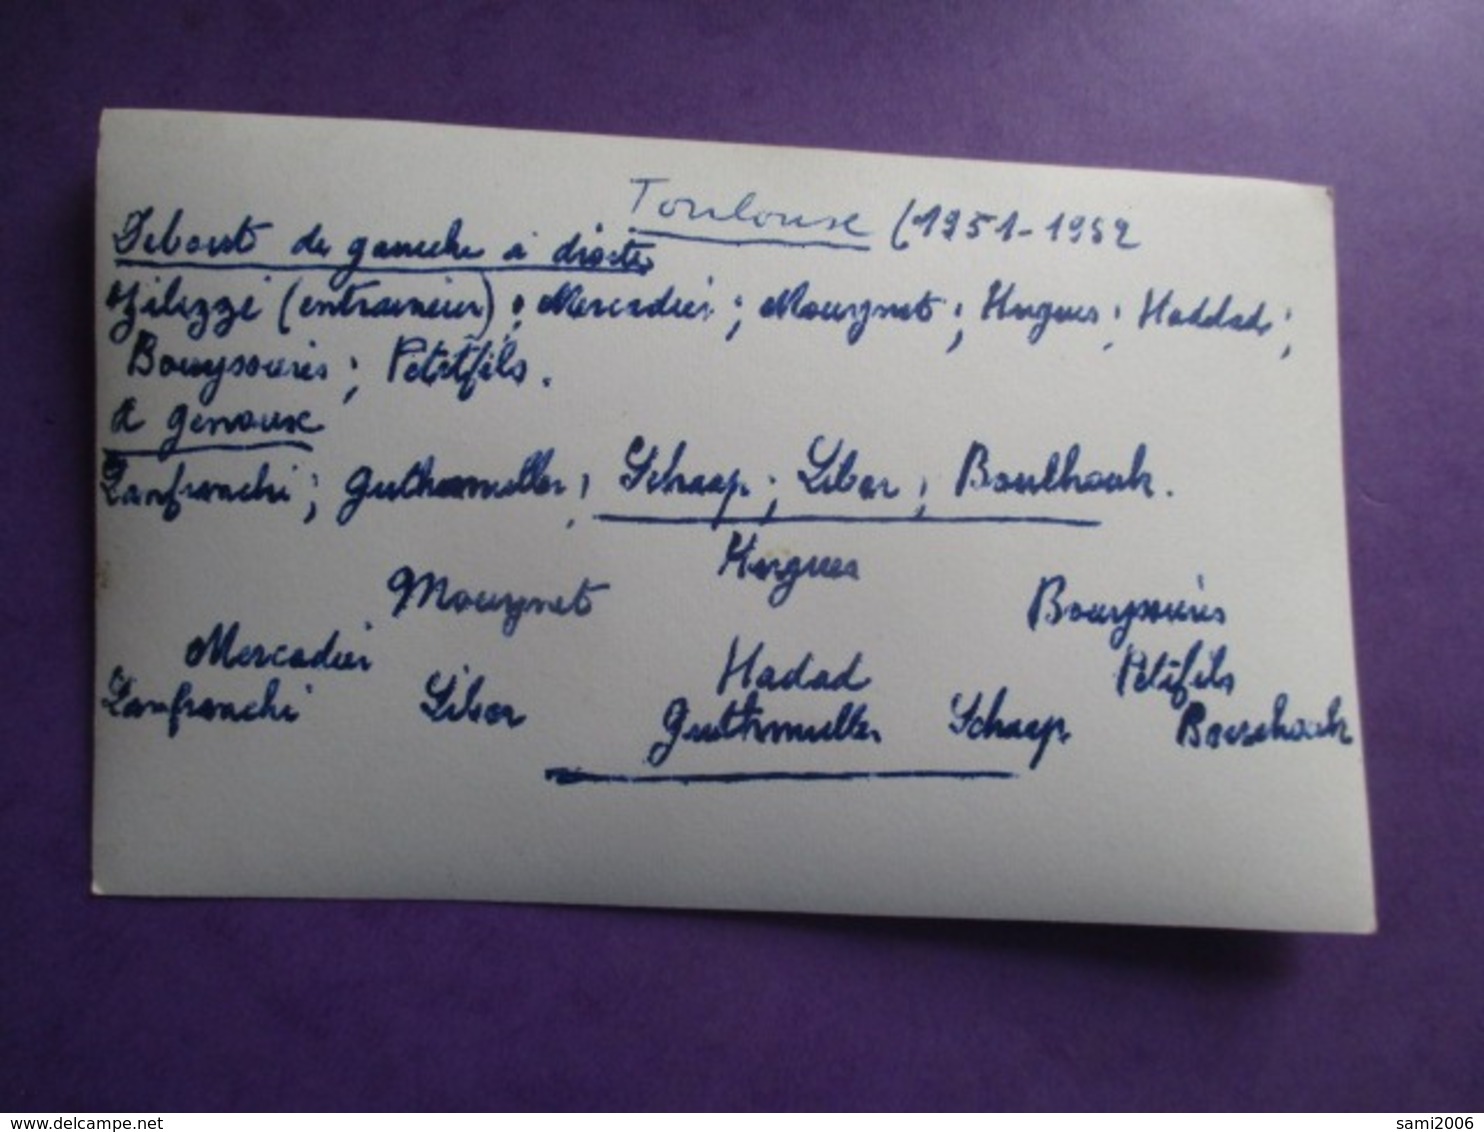 Toulouse (1951-1952
Debout de gauche à droite
Zilizzi (entraineur) ; Mercadier ; Mourgnet ; Hugues ; Haddad ;
Bouyssouries ; Petitfils .
a genoux
Lanfranchi ; Guthmuller ; Schaap ; Libar ; Boulhouk .
Hugues
Mourgnet Bouyssouries
Mercadier Hadad Petifils
Lanfranchi Libar Guthmuller Schaap Bouchouk
www.delcampe.net sami2006